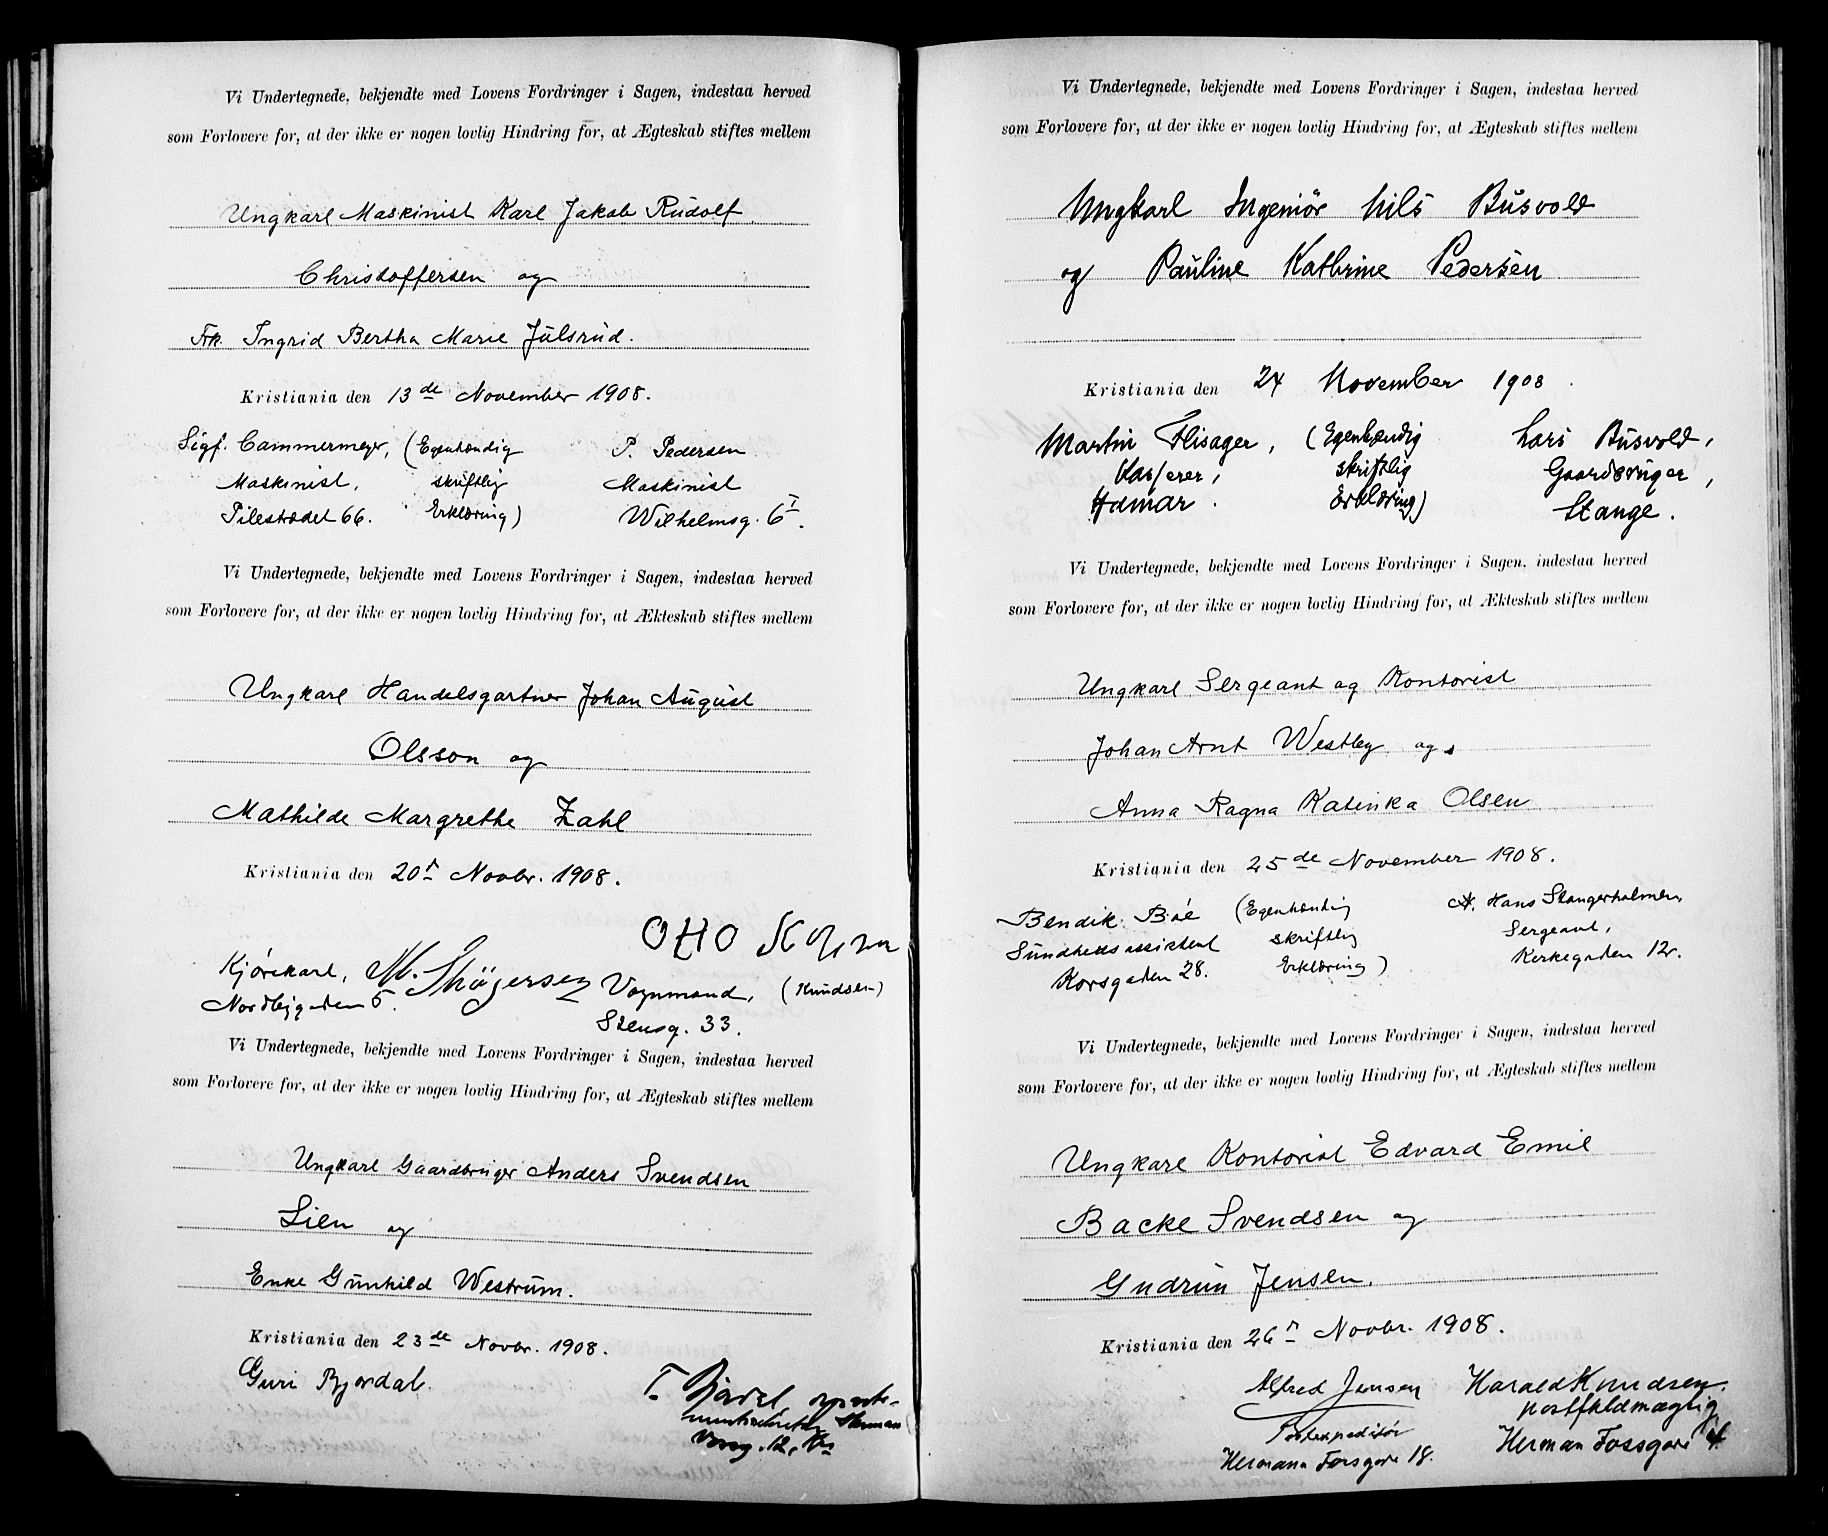 Vi Undertegnede, bekjendte med Lovens Fordringer i Sagen, indestaa herved
som Forlovere for, at der ikke er nogen lovlig Hindring for, at Ægteskab stiftes mellem
Ungkarl Maskinist Karl Jakob Rudolf
Christoffersen og
Frk. Ingrid Bertha Marie Julsrud.
Kristiania den 13de November 1908.
Sigf. Cammermeyer, (Egenhændig P. Pedersen
Maskinist, skriftlig Maskinist
Pilestrædet 66. Erklæring) Wilhelmsg. 6 I.
Vi Undertegnede, bekjendte med Lovens Fordringer i Sagen, indestaa herved
som Forlovere for, at der ikke er nogen lovlig Hindring for, at Ækteskab stiftes mellem
Ungkarl Handelsgartner Johan August
Olsson og
Mathilde Margrethe Zahl
Kristiania den 20d Novbr. 1908.
Otto
Kjørekarl, M. Vognmand, (Knudsen)
Nordbygaden 5. Stensg. 33.
Vi Undertegnede, bekjendte med Lovens Fordringer i Sagen, indestaa herved
som Forlovere for, at der ikke er nogen lovlig Hindring for, at Ægteskab stiftes mellem
Ungkarl Gaardbruger Anders Svendsen
Lien og
Enke Gunhild Westrum.
Kristiania den 23de Novbr. 1908.
Guri Bjordal. T. Bjordal,
Vi Undertegnede, bekjendte med Lovens Fordringer i Sagen, indestaa herved
som Forlovere for, at der ikke er nogen lovlig Hindring for, at Ægteskab stiftes mellem
Ungkarl Ingeniør Nils Busvold
og Pauline Kathrine Pedersen
Kristiania den 24 November 1908.
Martin Flisager, (Egenhændig Lars Busvold,
Karserer, skriftlig Gaardbruger,
Hamar. Erklæring) Stange.
Vi Undertegnede, bekjendte med Lovens Fordringer i Sagen, indestaa herved
som Forlovere for, at der ikke er nogen lovlig Hindring for, at Ækteskab stiftes mellem
Ungkarl Sergeant og Kontorist
Johan Arnt Westby og
Anna Ragna Katinka Olsen
Kristiania den 25de November 1908.
Bendik Bøe (Egenhændig Hans Stangerholmen,
Sundhedsassistent skriftlig Sergeant,
Korsgaden 28. Erklæring) Kirkegaden 12.
Vi Undertegnede, bekjendte med Lovens Fordringer i Sagen, indestaa herved
som Forlovere for, at der ikke er nogen lovlig Hindring for, at Ægteskab stiftes mellem
Ungkarl Kontorist Edvard Emil
Backe Svendsen og
Gudrun Jensen.
Kristiania den 26d Novbr. 1908.
Alfred Jensen Harald Knudsen.
Postexpeditør postfuldmægtig
Hermann Fossgade 18. Herman Fossgade 4